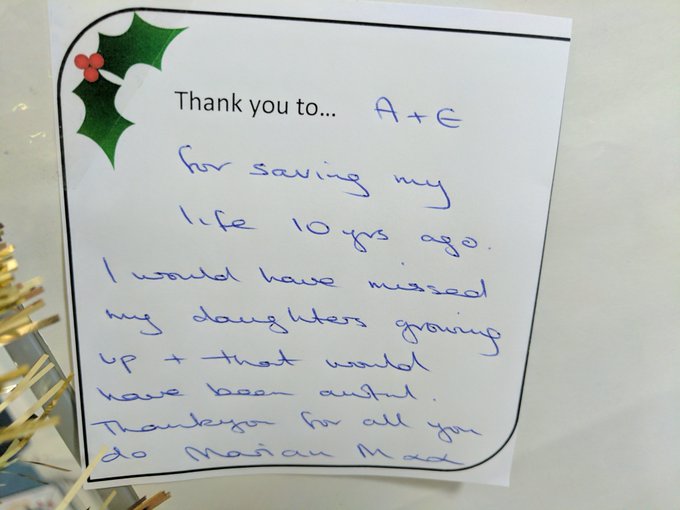 Thank you to... A + E
for saving my
life 10 yrs ago.
I would have missed
my daughters growing
up + that would
have been awful.
Thankyou for all you
do Marian M xx